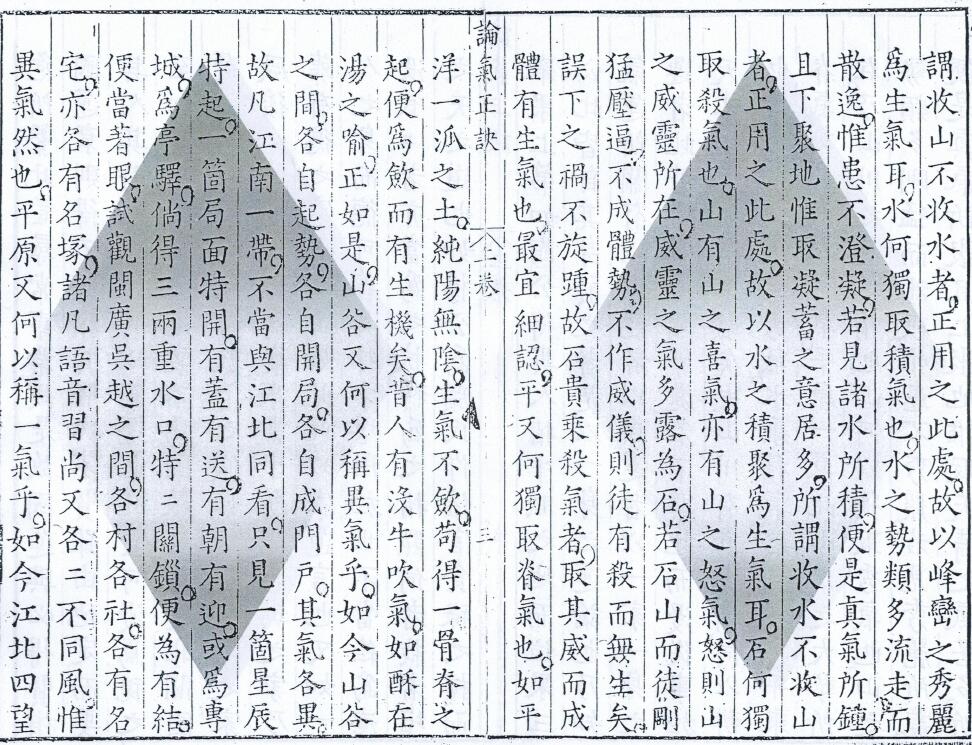 謂收山不收水者正用之此處故以峰巒之秀麗
爲生氣耳水何獨取積氣也水之勢類多流走而
散逸惟患不澄凝若見諸水所積便是眞氣所鍾
且下聚地惟取凝蓄之意居多所謂收水不收山
者正用之此處故以水之積聚爲生氣耳石何獨
取殺氣也山有山之喜氣亦有山之怒氣怒則山
之威靈所在威靈之氣多露為石若石山而徒剛
猛壓逼不成體勢不作威儀則徒有殺而無生矣
誤下之禍不旋踵故石貴乘殺氣者取其威而成
體有生氣也最宜細認平又何獨取脊氣也如平
論氣正訣 上卷 三
洋一派之土純陽無陰生氣不歛苟得一骨脊之
起便爲歛而有生機矣昔人有沒牛吹氣如酥在
湯之喻正如是山谷又何以稱異氣乎如今山谷
之間各自起勢各自開局各自成門戶其氣各異
故凡江南一帶不當與江北同看只見一箇星辰
特起一箇局面特開有蓋有送有朝有迎或爲專
城爲亭驛倘得三兩重水口特二關鎖便為有結
便當著眼試觀閩廣吳越之間各村各社各有名
宅亦各有名塚諸凡語音習尚又各二不同風惟
異氣然也平原又何以稱一氣乎如今江北四望